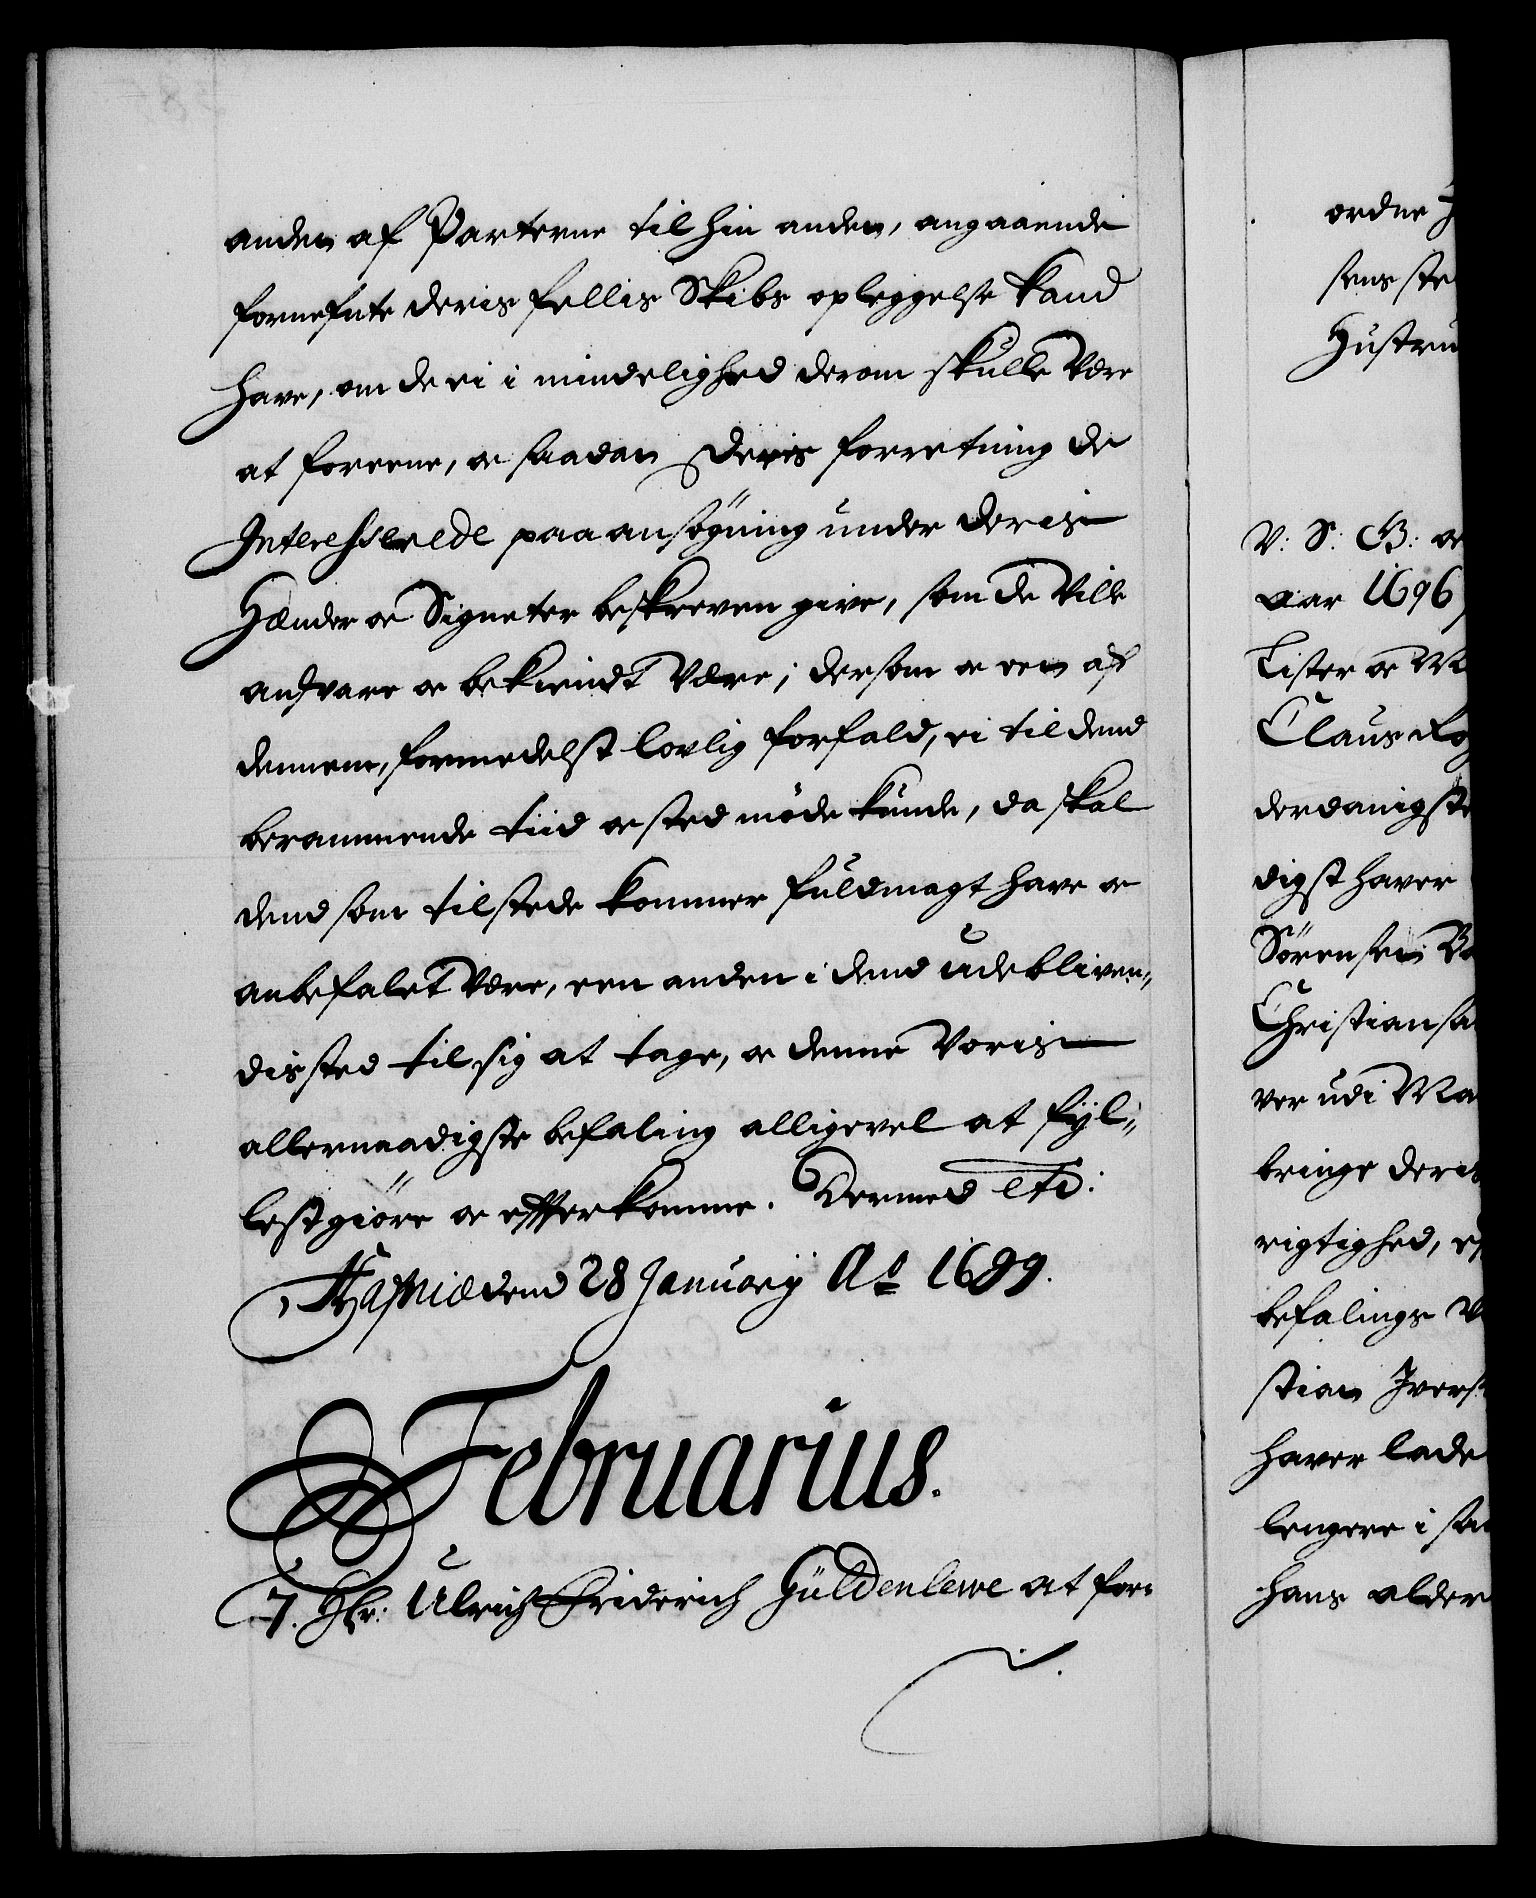 anden af Parterne til hin anden, angaaende
fornefnte deris fellis Skibs opleggelse kand
have, om de ei i mindelighed derom skulle være
at foreene, oc saadan deris forretning de
Interesserede paa ansøgning under deris
Hænder oc Signeter beskreven give, som de ville
andsvare oc bekiendt være; dersom oc een af
dennem, formedelst lovlig forfald, ei til dend
berammende tiid oc sted møde kunde, da skal
dend som tilstede kommer fuldmagt have oc
anbefalet være, een anden i dend udebliven„
dis sted til sig at tage, oc denne Voris
allernaadigste befaling alligevel at fyl„
lestgiøre oc efterkomme. Dermed etc:
Hafniæ dend 28 Januarij Ao 1699.
Februarius.
7. Hr: Ulrich Friderich Güldenlewe at for„
ordne
sens ste
Hustru
V: S: G: oc
Aar 1696
Lister oc M
Claus
derdanigste
digst haver
Sørensen
Christiansa
ver udi Ma
bringe deris
rigtighed,
befalings
stian Ivers
haver lade
lengere i sa
hans alder